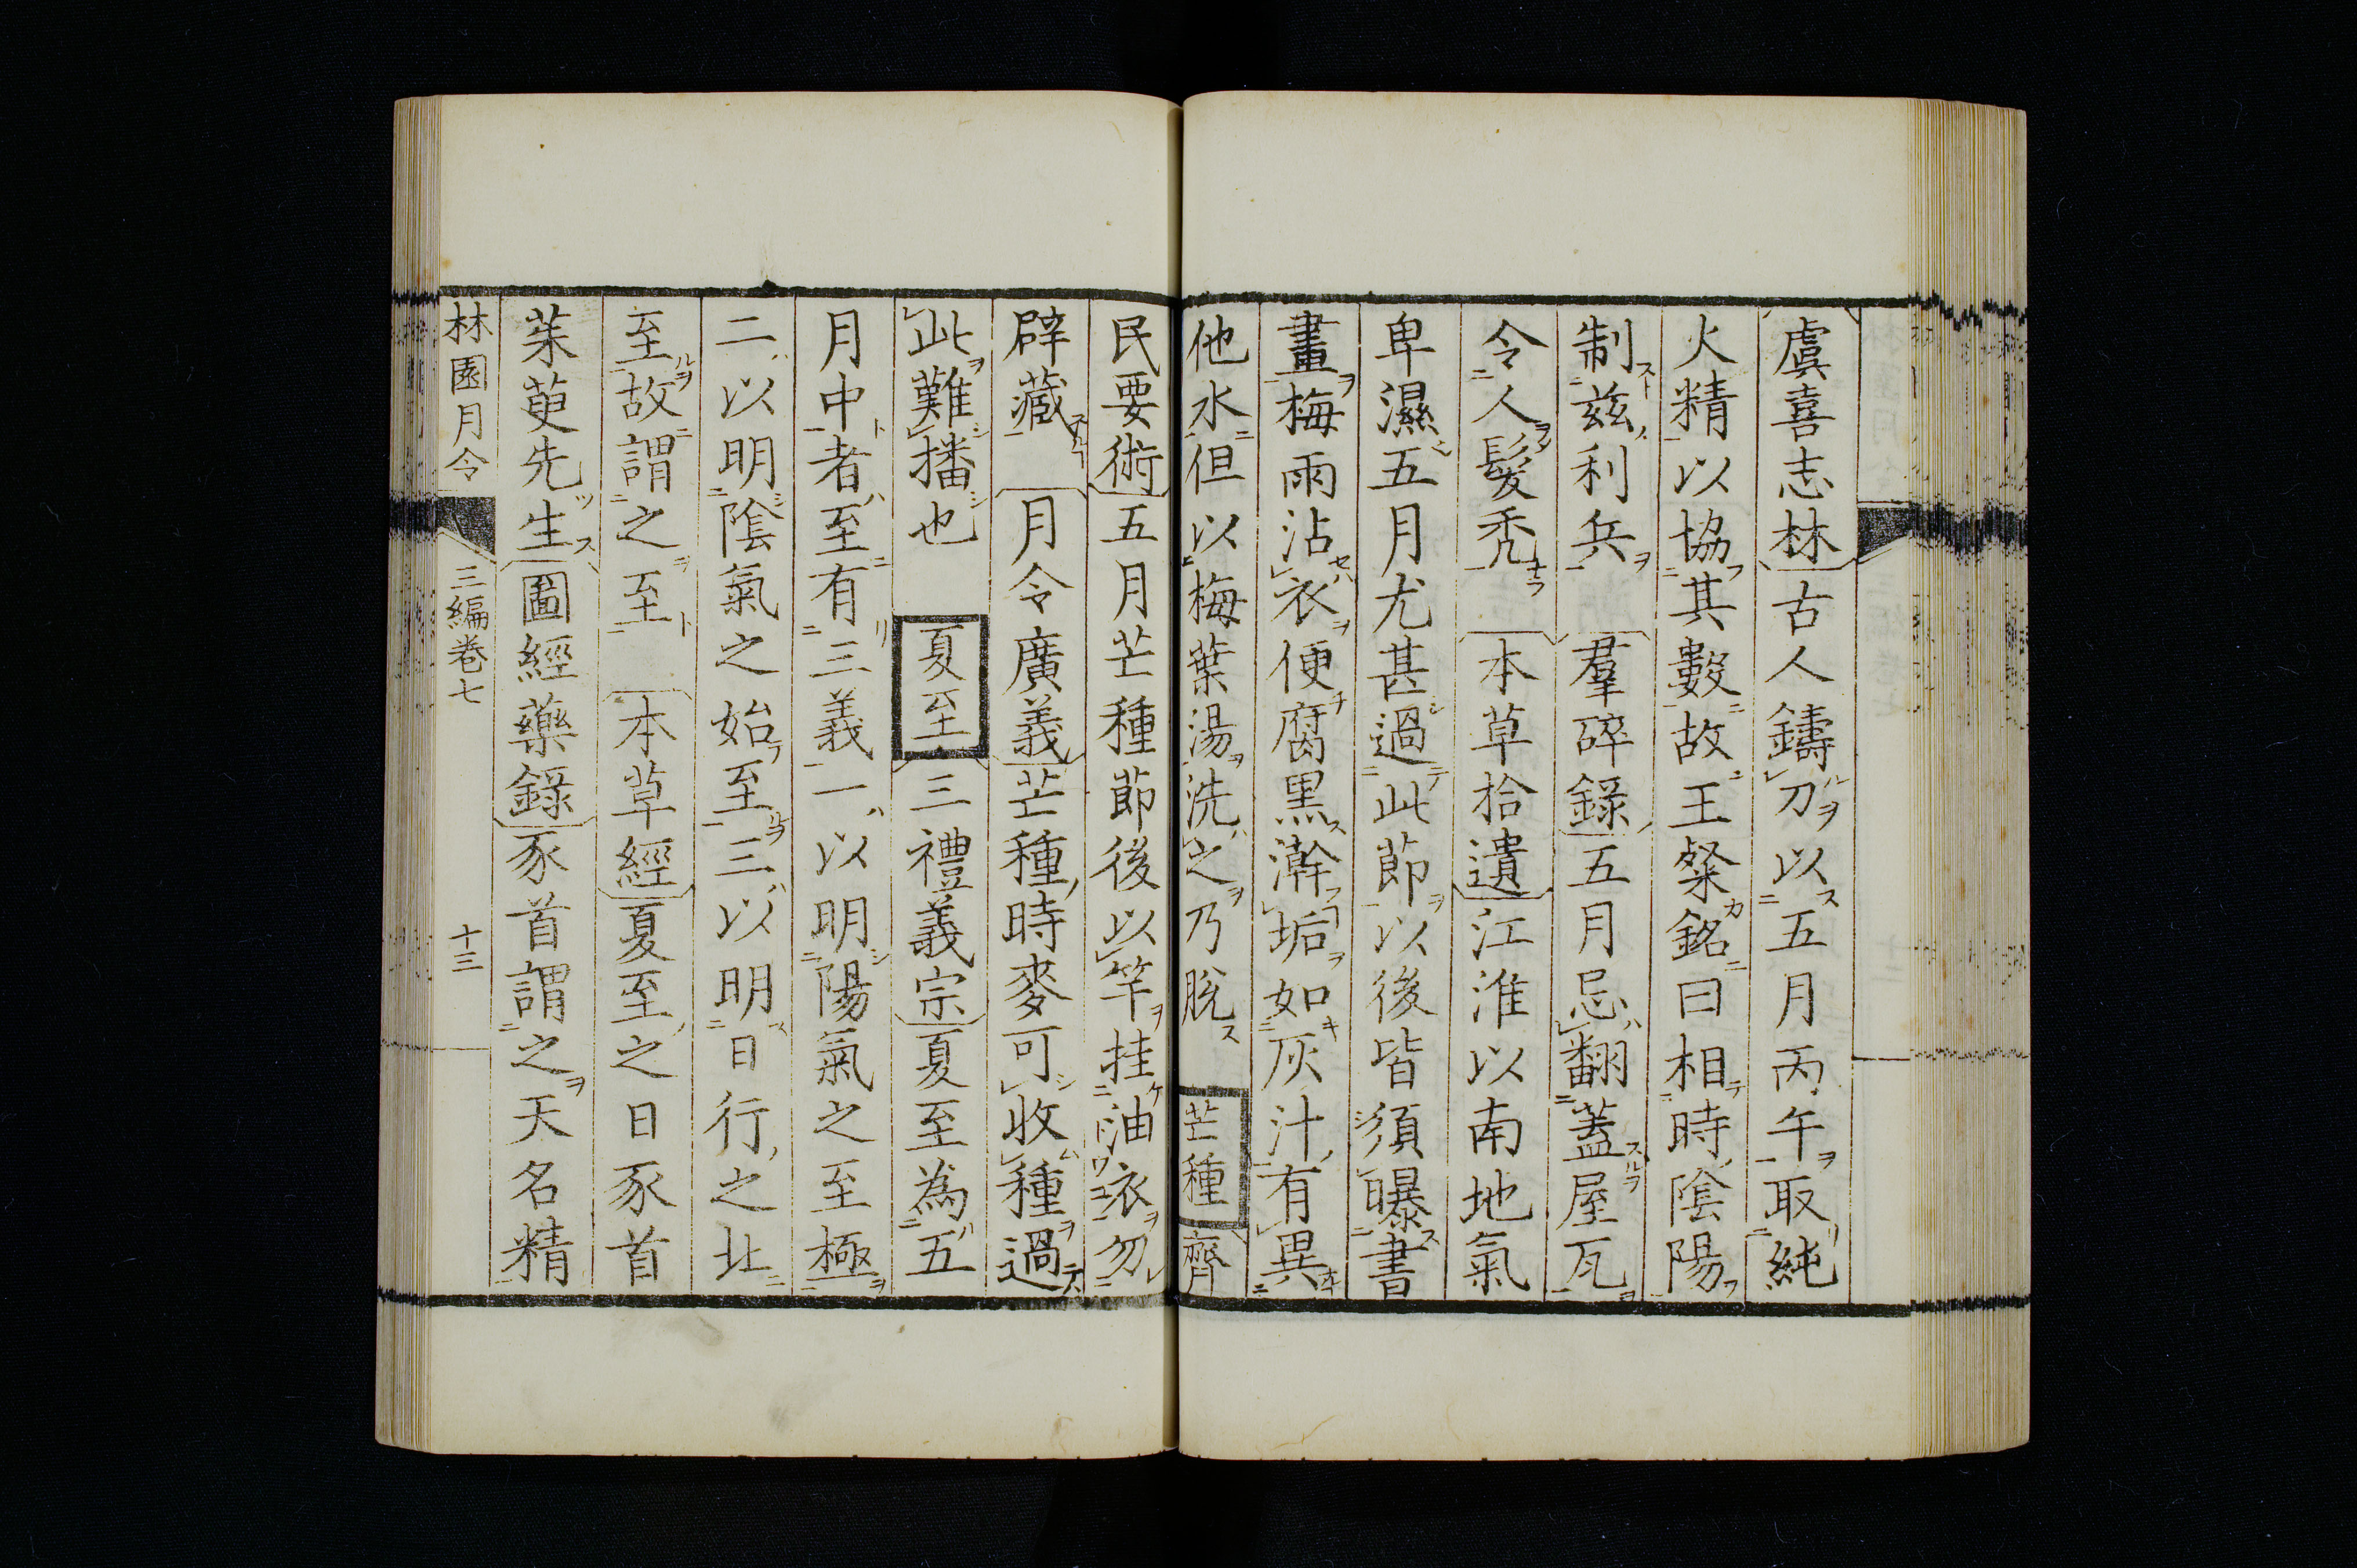 虞喜志林古人鑄刀以五月丙午取純
火精以協其數故王粲銘曰相時陰陽
制玆利兵 羣碎錄五月忌翻蓋屋瓦
令人髮禿 本草拾遺江淮以南地氣
卑濕五月尤甚過此節以後皆須曝書
畫梅雨沾衣便腐黑澣垢如灰汁有異
他水但以梅葉湯洗之乃脫 芒種 齊
民要術五月芒種節後以竿挂油衣勿
辟藏 月令廣義芒種時麥可收種過
此難播也 夏至 三禮義宗夏至為五
月中者至有三義一以明陽氣之至極
二以明陰氣之始至三以明日行之北
至故謂之至 本草經夏至之日豕首
茱萸先生圖經藥錄豕首謂之天名精
林園月令 三編卷七 十三